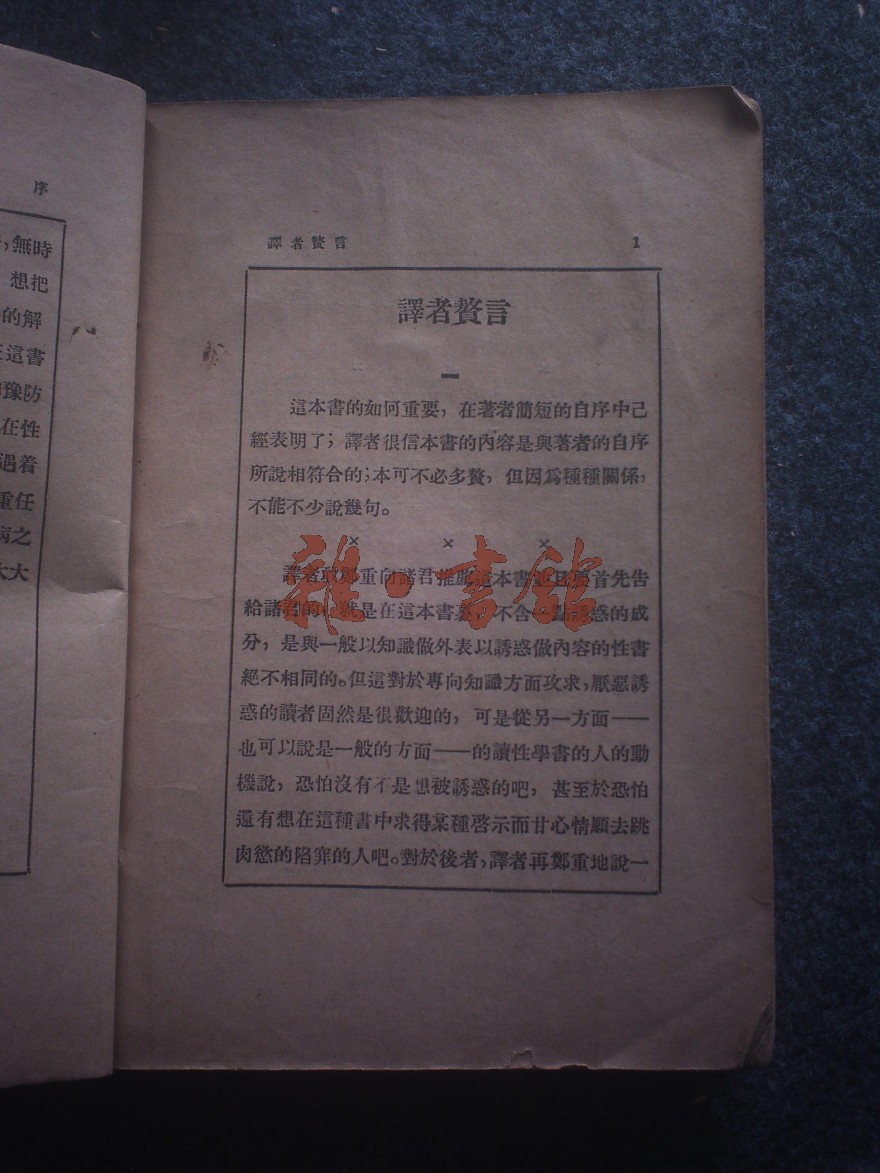 序
，無時
想把
的解
這書
豫防
在性
過着
重任
病之
大大
譯者贅言 1
譯者贅言
一
這本書的如何重要，在著者簡短的自序中己
經表明了；譯者很信本書的內容是與著者的自序
所說相符合的；本可不必多贅，但因爲種種關係，
不能不少說幾句。
× × ×
譯者敢鄭重向諸君推薦這本書並且要首先告
給諸君的，就是在這本書裏，不含一點誘惑的成
分，是與一般以知識做外表以誘惑做內容的性書
絕不相同的。但這對於專向知識方面攻求，厭惡誘
惑的讀者固然是很歡迎的，可是從另一方面——
也可以說是一般的方面——的讀性學書的人的動
機說，恐怕沒有不是想被誘惑的吧，甚至於恐怕
還有想在這種書中求得某種啓示而甘心情願去跳
肉慾的陷穽的人吧。對於後者，譯者再鄭重地說一
雜·書館